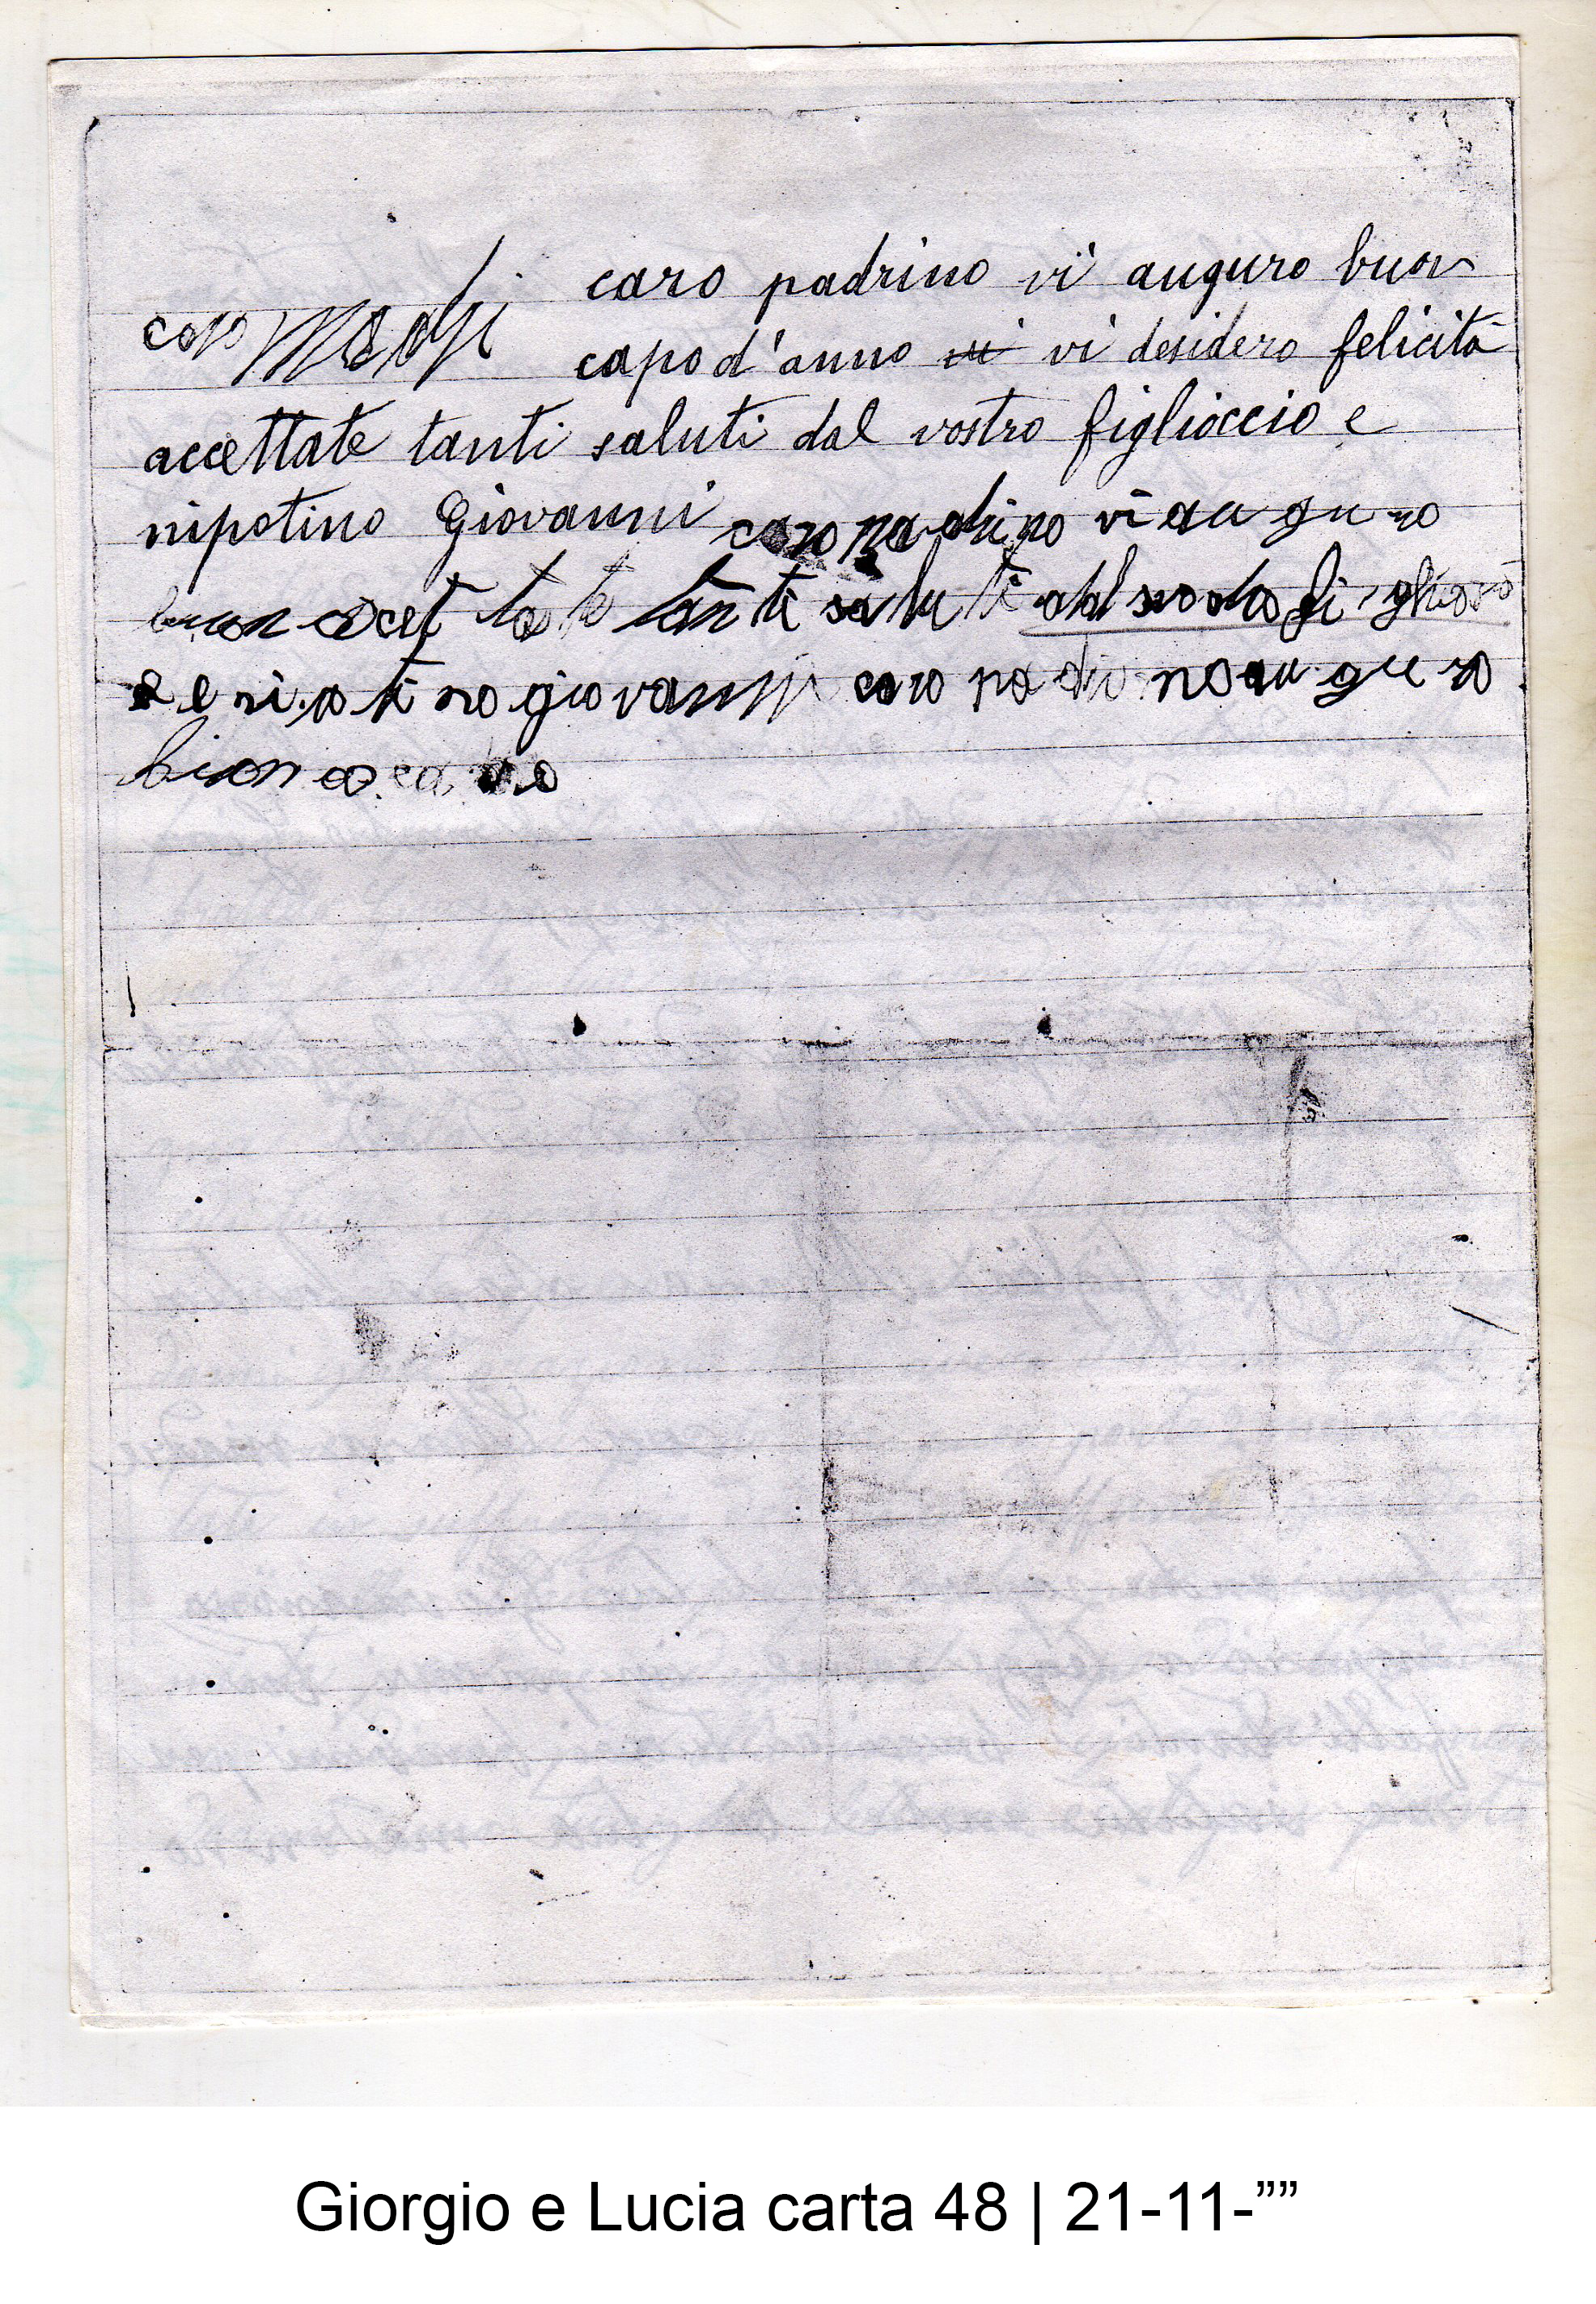 caro padrino vi auguro buon
capo d'anno vi vi desidero felicità
accettate tanti saluti dal vostro figlioccio e
nipotino Giovanni caro padrino vi au gu ro
buon accet ta te tan ti sa lu ti
e ni po ti no giovanni caro pa dri no au gu ro
buon
Giorgio e Lucia carta 48 | 21-11-””